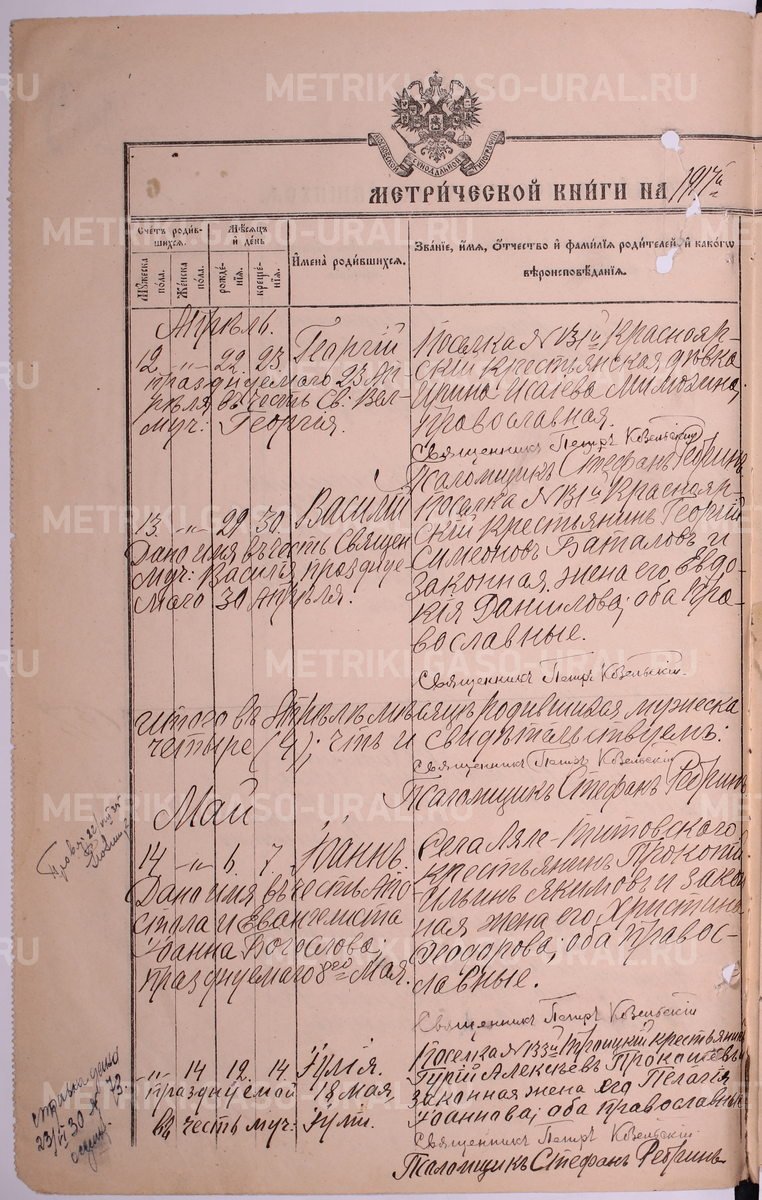 METRIKI.GASO-URAL.RU
МЕТРИ́ЧЕСКОЙ КНИ́ГИ НА 1917й
Счетъ родившихся.
Мѣсяцъ и день
Мужеска пола.
Женска пола.
рожденія.
крещенія.
Имена родившихся.
Званіе, имя, отчество и фамилія родителей, и какого вѣроисповѣданія.
Апрѣль.
12 „ 22. 23. Георгій
празднуемаго 23 Апрѣля
въ честь Св. Вел-
муч: Георгія.
Поселка № 131й Краснояр-
скій крестьянская дѣвка
Ирина Исаева
Православная.
Священникъ Петръ Козельскій
Псаломщикъ Стефанъ Ребринъ
13. „ 29 30. Василій
Дано имя въ честь Священ
Муч: Василія праздную-
емаго 30 Апрѣля.
Поселка № 131й Краснояр-
скій крестьянинъ Георгій
Симеоновъ Баталовъ и
законная жена его Евдо-
кія Данилова; оба Пра-
вославные.
Священникъ Петръ Козельскій
Итого въ Апрѣлѣ мѣсяцѣ родившихся мужеска
четыре (4); что и свидѣтельствуемъ:
Священникъ Петръ Козельскій
Псаломщикъ Стефанъ Ребринъ
Май
14 „ 6. 7. Іоаннъ.
Дано имя въ честь Апо
стола и Евангелиста
Іоанна Богослова,
празднуемаго 8го Мая.
Села Ляле-Титовскаго
крестьянинъ Прокопій
Ильинъ Якимовъ и закон
ная жена его Христина
Ѳеодорова; оба правос-
лавные.
Священникъ Петръ Козельскій
„ 14 12. 14 Іулія.
празднуемой 18 мая
въ честь муч: Іуліи.
Поселка № 133й Троицкій крестьянинъ
Гурій Алексѣевъ Прокопьевъ
законная жена его Пелагія
Іоаннова; оба православные
Священникъ Петръ Козельскій
Псаломщикъ Стефанъ Ребринъ
23/VI 30 № 73